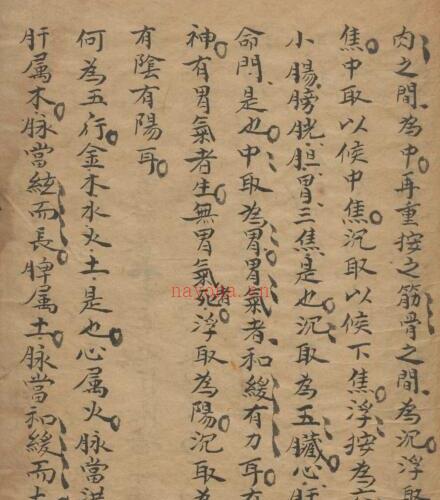 肉之間為中再重按之筋骨之間為沉浮取
焦中取以候中焦沉取以候下焦浮按為六
小腸膀胱胆胃三焦是也沉取為五臟心肝
命門是也中取為胃胃氣者和緩有力耳有
神有胃氣者生無胃氣者死浮取為陽沉取為
有陰有陽耳
何為五行金木水火土是也心属火脉當洪
肝属木脉當絃而長脾属土脉當和緩而大
nayona.cn